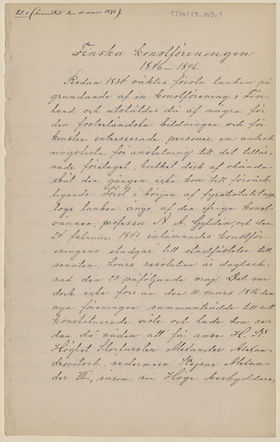 Finska konstföreningen
1846–1896.
Redan 1836 väktes första tanken på
grundande af en konstförening i Fin-
land och utvaldes då af några för
den fosterländska bildningen och för
konsten intresserade personer en anteck-
ningslista för anslutning till det tilltän-
nade företaget, hvilket dock af okänd
skäl den gången icke kom till förverk-
ligande. Först i början af fyratiotalet upp-
togs tanken ånyo af den ifrige konst-
vännen, professor N. A. Gyldén, och den
24 februari 1845 inlämnades konstför-
eningens stadgar till stadfästelse till
senaten, hvars resolution är dagteck-
nad den 23 påföljande maj. Det var
dock icke förr än den 11 mars 1846 den
nya föreningen sammanträdde till sitt
konstituerande möte och hade kon se-
dan då nåden att få anse H. K.
Höghet Storfursten Alexander Alexan-
drovitsch, sedermera Kejsar Alexan-
der III, såsom sin Höge Beskyddare,